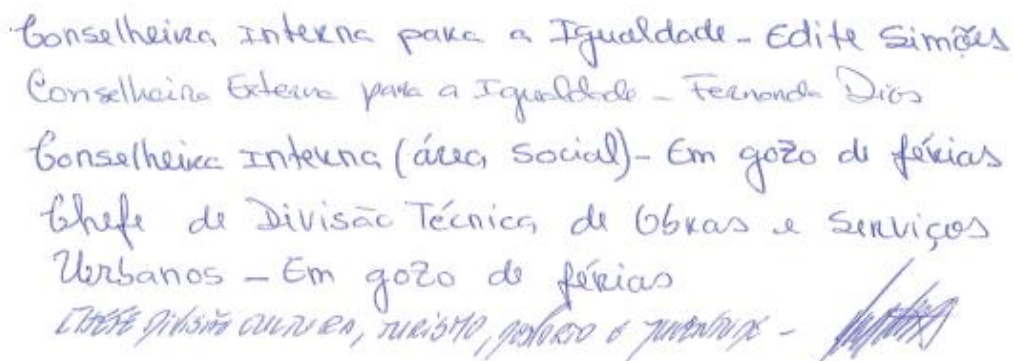 Conselheira Interna para a Igualdade - Edite Simões
Conselheira Externa para a Igualdade - Fernanda Dios
Conselheira Interna (área Social) - Em gozo de férias
Chefe de Divisão Técnica de Obras e Serviços
Urbanos - Em gozo de férias
CHEFE DIVISÃO CULTURA, TURISMO, DESPORTO E JUVENTUDE -